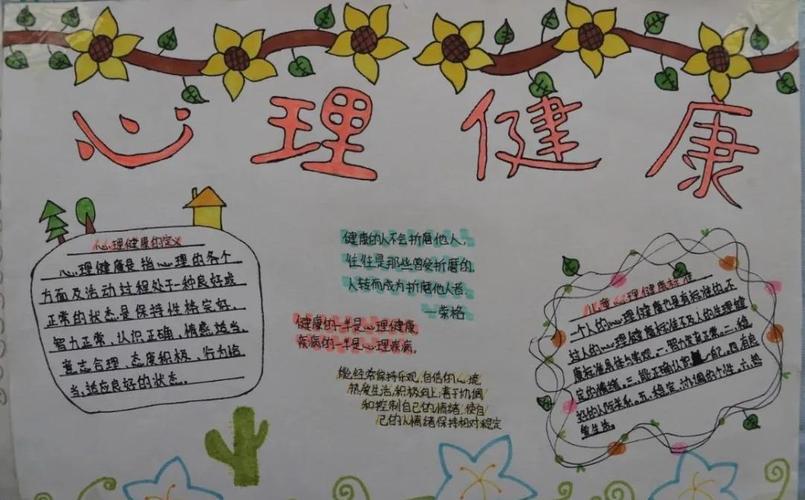 心理健康
心理健康的定义
心理健康是指心理的各个
方面及活动过程处于一种良好或
正常的状态。是保持性格完好、
智力正常、认识正确、情感适当、
意志合理、态度积极、行为恰
当、适应良好的状态。
健康的人不会折磨他人,
往往是那些曾受折磨的
人转而成为折磨他人者
—荣格
健康的一半是心理健康
疾病的一半是心理疾病。
能经常保持乐观、自信的心境,
热爱生活,积极向上,善于协调
和控制自己的情绪,使自
己的人情绪保持相对稳定
儿童心理健康标准
一个人的心理健康也是有标准的,不
过人的心理健康标准不及人的生理健
康标准具体与客观。一、智力要正常。二、稳
定的情绪。三、能正确认识 四、有良
好的人际关系。五、稳定、协调的个性。六、热
爱生活。